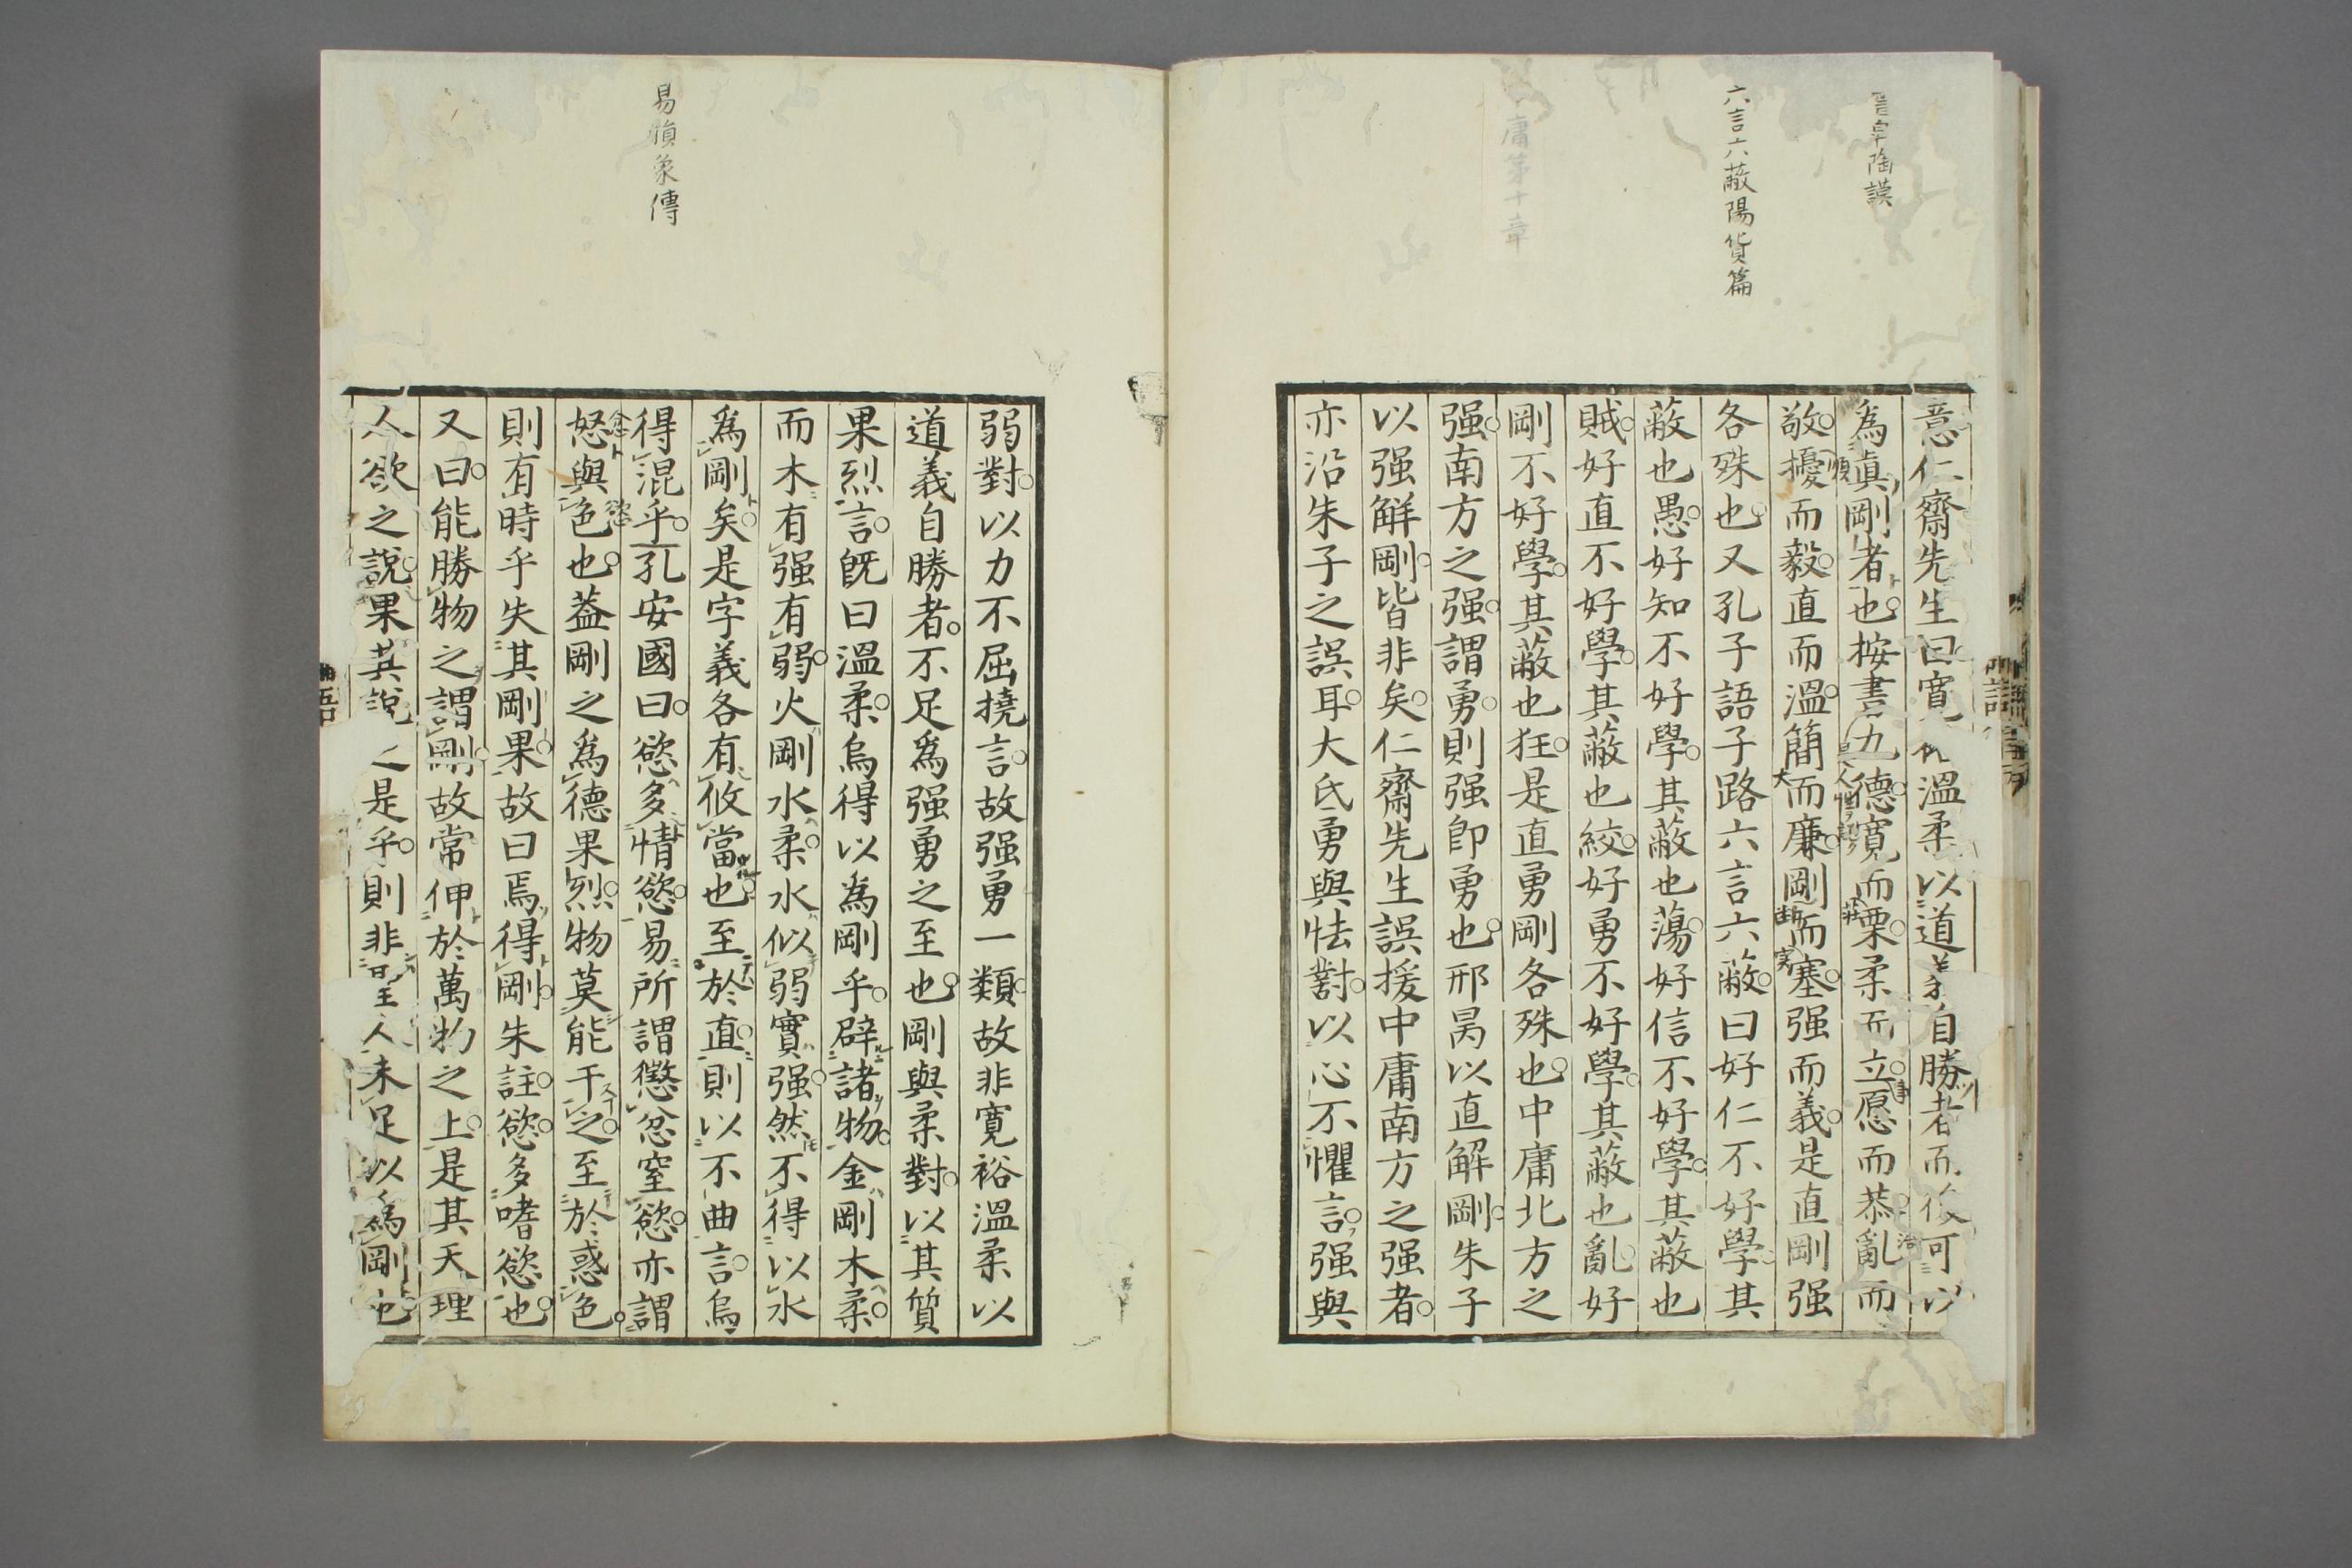 皐陶謨
六言六蔽陽貨篇
庸第十章
意仁齋先生曰寬 溫柔以道義自勝者而後可以
爲眞剛者也按書九德寬而栗柔而立愿而恭亂而
敬擾而毅直而溫簡而廉剛而塞强而義是直剛强
各殊也又孔子語子路六言六蔽曰好仁不好學其
蔽也愚好知不好學其蔽也蕩好信不好學其蔽也
賊好直不好學其蔽也絞好勇不好學其蔽也亂好
剛不好學其蔽也狂是直勇剛各殊也中庸北方之
强南方之强謂勇則强卽勇也邢昺以直解剛朱子
以强解剛皆非矣仁齋先生誤援中庸南方之强者
亦沿朱子之誤耳大氐勇與怯對以心不懼言强與
易損象傳
弱對以力不屈撓言故强勇一類故非寬裕溫柔以
道義自勝者不足爲强勇之至也剛與柔對以其質
果烈言旣曰溫柔烏得以爲剛乎辟諸物金剛木柔
而木有强有弱火剛水柔水似弱實强然不得以水
爲剛矣是字義各有攸當也至於直則以不曲言烏
得混乎孔安國曰慾多情慾易所謂懲忿窒慾亦謂
怒與色也蓋剛之爲德果烈物莫能干之至於惑色
則有時乎失其剛果故曰焉得剛朱註慾多嗜慾也
又曰能勝物之謂剛故常伸於萬物之上是其天理
人欲之說果其說 是乎則非聖人未足以爲剛也